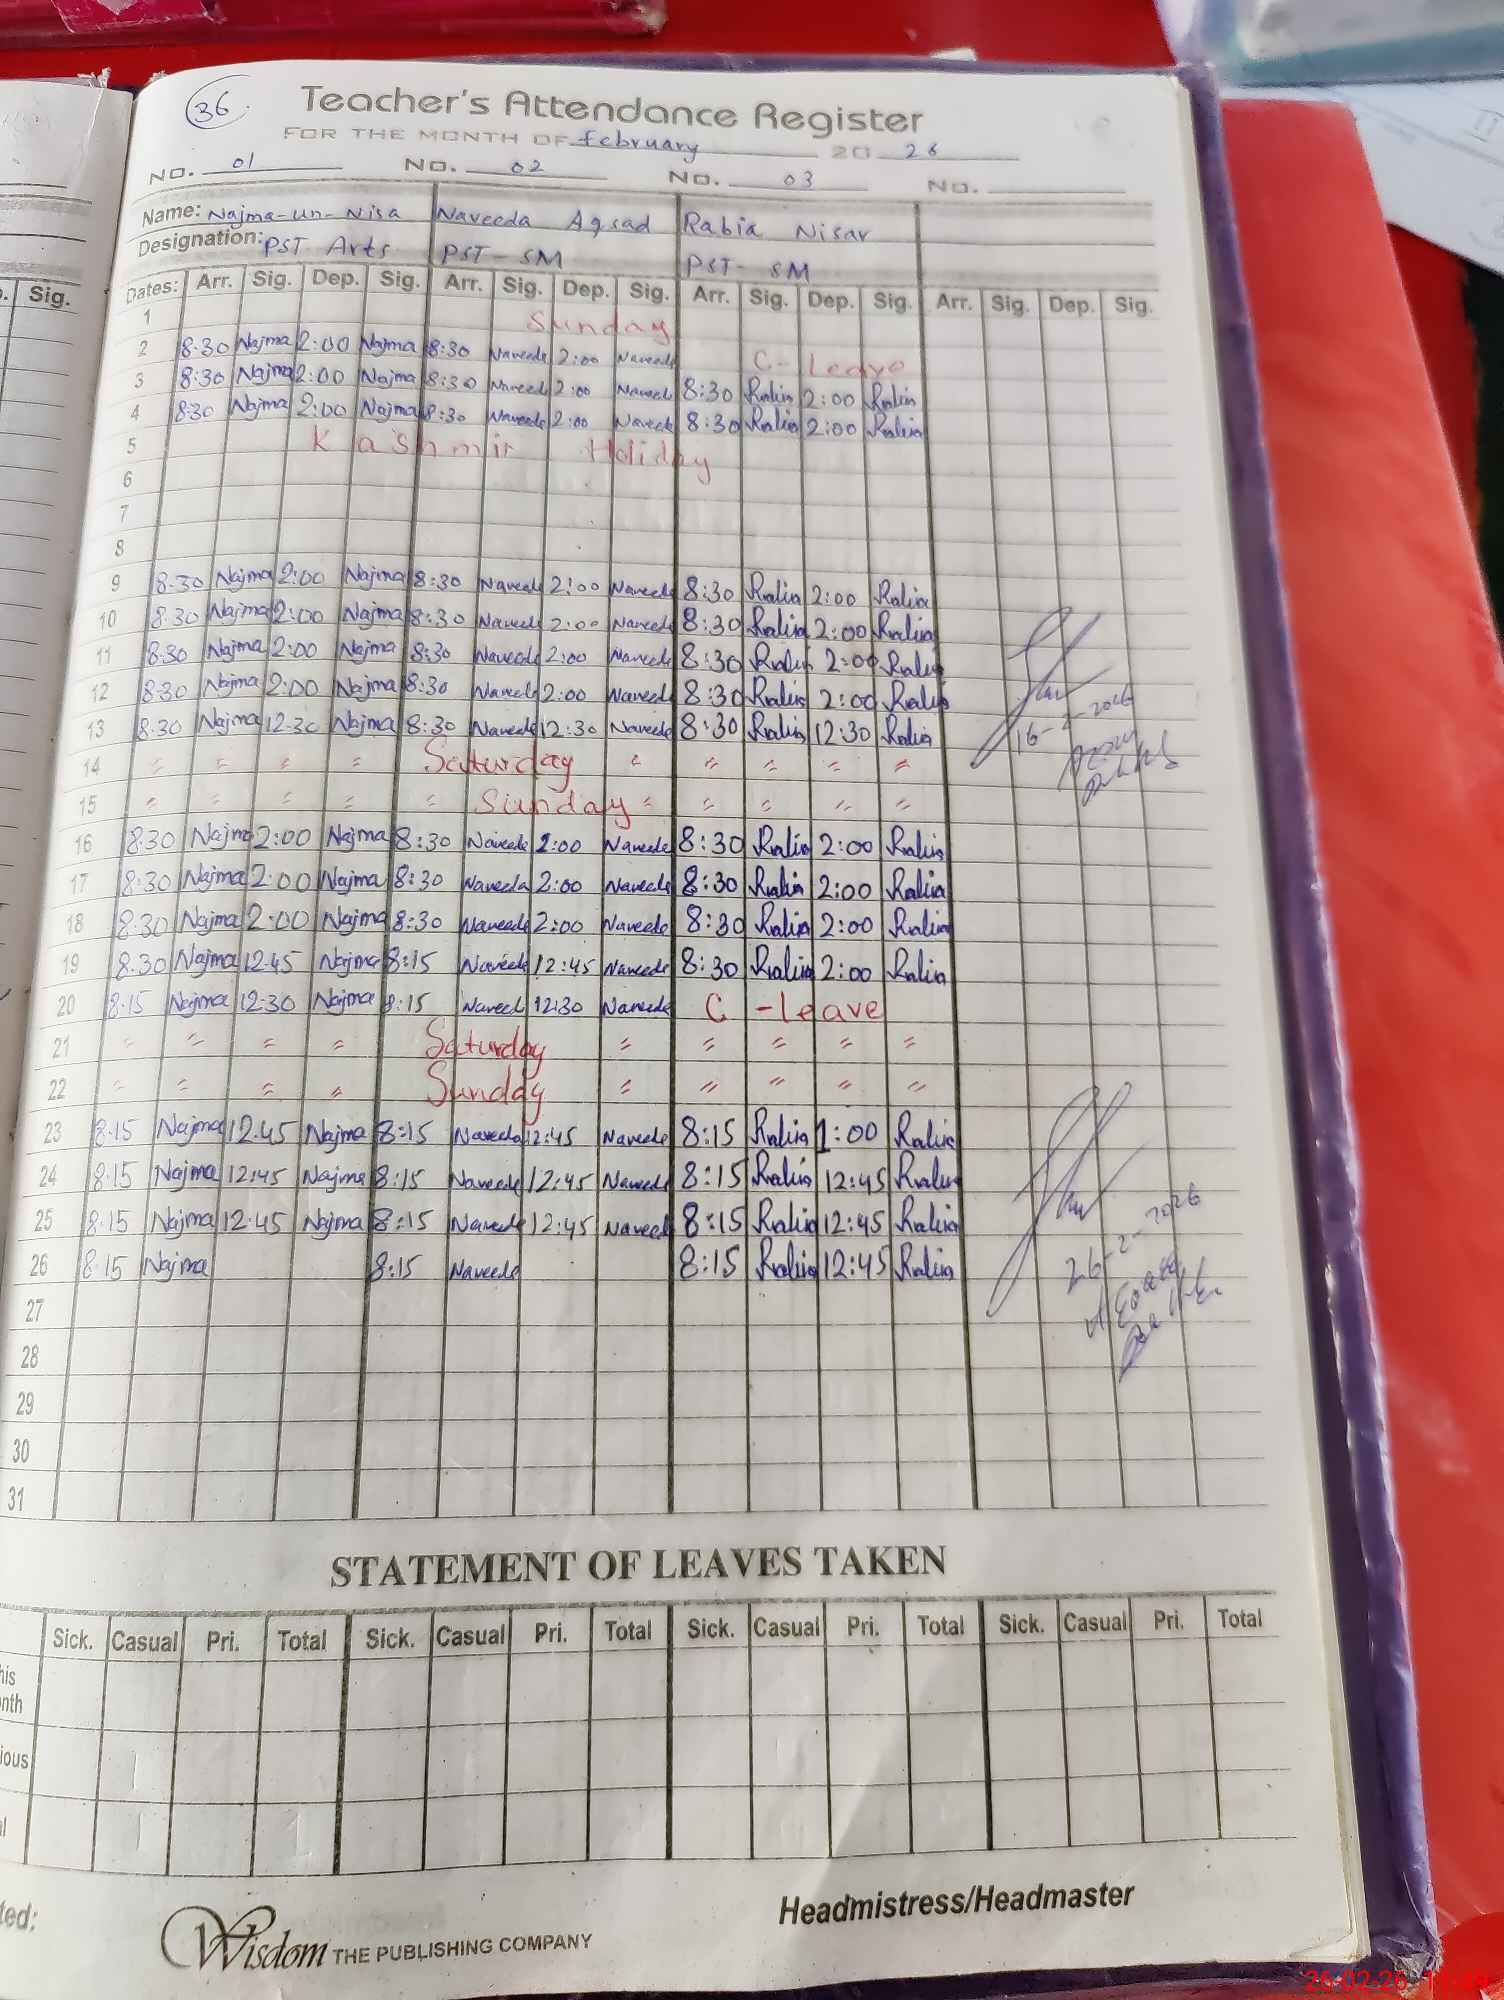 36
Teacher's Attendance Register
FOR THE MONTH OF February 20 26
No. 01 No. 02 No. 03 No.
Name: Najma-un-Nisa Naveeda Rabia Nisar
Designation: PST Arts PST-SM PST-SM
Sig.
Dates: Arr. Sig. Dep. Sig. Arr. Sig. Dep. Sig. Arr. Sig. Dep. Sig. Arr. Sig. Dep. Sig.
1 Sunday
2 8:30 Najma 2:00 Najma 8:30 Naveeda 2:00 Naveeda C-Leave
3 8:30 Najma 2:00 Najma 8:30 Naveeda 2:00 Naveeda 8:30 Rabia 2:00 Rabia
4 8:30 Najma 2:00 Najma 8:30 Naveeda 2:00 Naveeda 8:30 Rabia 2:00 Rabia
5 Kashmir Holiday
6
7
8
9 8:30 Najma 2:00 Najma 8:30 Naveeda 2:00 Naveeda 8:30 Rabia 2:00 Rabia
10 8:30 Najma 2:00 Najma 8:30 Naveeda 2:00 Naveeda 8:30 Rabia 2:00 Rabia
11 8:30 Najma 2:00 Najma 8:30 Naveeda 2:00 Naveeda 8:30 Rabia 2:00 Rabia
12 8:30 Najma 2:00 Najma 8:30 Naveeda 2:00 Naveeda 8:30 Rabia 2:00 Rabia
13 8:30 Najma 12:30 Najma 8:30 Naveeda 12:30 Naveeda 8:30 Rabia 12:30 Rabia
16-2-2026
14 " " " " Saturday " " " " "
15 " " " " " Sunday " " " " "
16 8:30 Najma 2:00 Najma 8:30 Naveeda 2:00 Naveeda 8:30 Rabia 2:00 Rabia
17 8:30 Najma 2:00 Najma 8:30 Naveeda 2:00 Naveeda 8:30 Rabia 2:00 Rabia
18 8:30 Najma 2:00 Najma 8:30 Naveeda 2:00 Naveeda 8:30 Rabia 2:00 Rabia
19 8:30 Najma 12:45 Najma 8:15 Naveeda 12:45 Naveeda 8:30 Rabia 2:00 Rabia
20 8:15 Najma 12:30 Najma 8:15 Naveed 12:30 Naveeda C-leave
21 " " " " Saturday " " " " "
22 " " " " Sunday " " " " "
23 8:15 Najma 12:45 Najma 8:15 Naveeda 12:45 Naveeda 8:15 Rabia 1:00 Rabia
24 8:15 Najma 12:45 Najma 8:15 Naveeda 12:45 Naveeda 8:15 Rabia 12:45 Rabia
25 8:15 Najma 12:45 Najma 8:15 Naveeda 12:45 Naveeda 8:15 Rabia 12:45 Rabia
26 8:15 Najma 8:15 Naveeda 8:15 Rabia 12:45 Rabia
26-2-2026
27
28
29
30
31
STATEMENT OF LEAVES TAKEN
Sick. Casual Pri. Total Sick. Casual Pri. Total Sick. Casual Pri. Total Sick. Casual Pri. Total
Headmistress/Headmaster
Wisdom THE PUBLISHING COMPANY